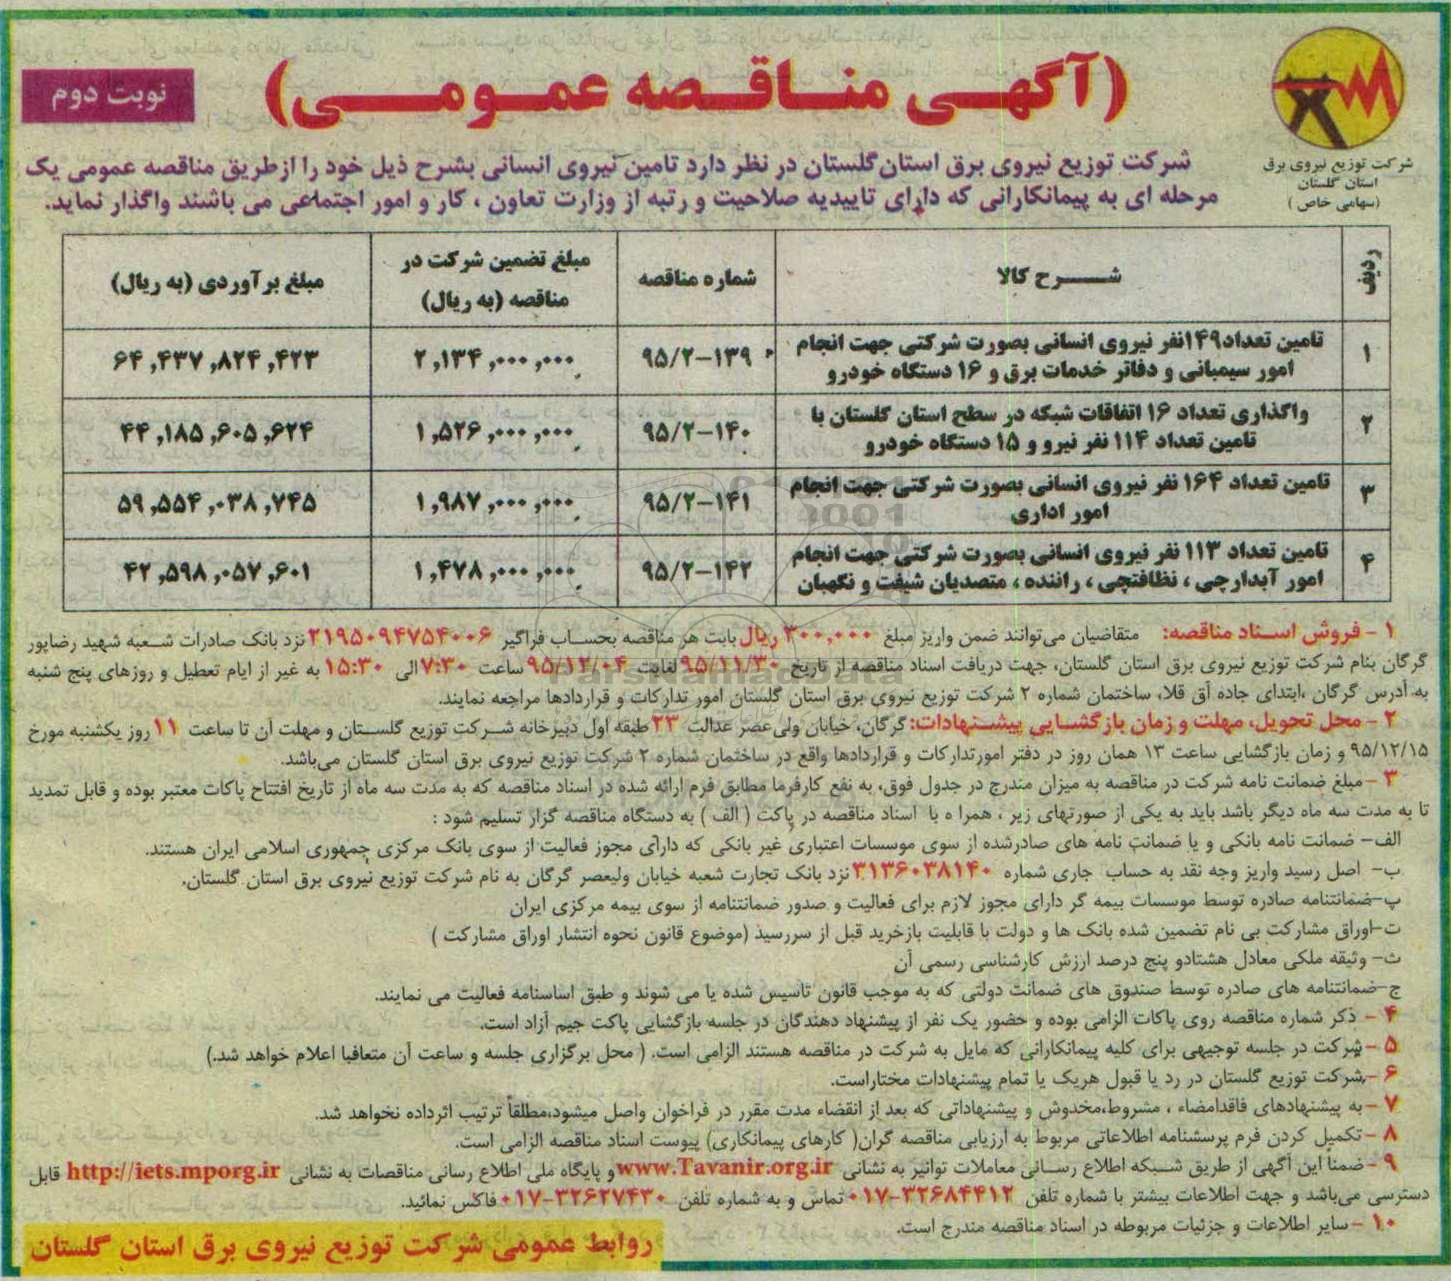 (آگهی مناقصه عمومی)
نوبت دوم
شرکت توزیع نیروی برق
استان گلستان
(سهامی خاص)
شرکت توزیع نیروی برق استان گلستان در نظر دارد تامین نیروی انسانی بشرح ذیل خود را ازطریق مناقصه عمومی یک
مرحله ای به پیمانکارانی که دارای تاییدیه صلاحیت و رتبه از وزارت تعاون ، کار و امور اجتماعی می باشند واگذار نماید.
ردیف | شرح کالا | شماره مناقصه | مبلغ تضمین شرکت در مناقصه (به ریال) | مبلغ برآوردی (به ریال)
۱ | تامین تعداد۱۴۹نفر نیروی انسانی بصورت شرکتی جهت انجام امور سیمبانی و دفاتر خدمات برق و ۱۶ دستگاه خودرو | ۹۵/۲-۱۳۹ | ۲,۱۳۴,۰۰۰,۰۰۰ | ۶۴,۴۳۷,۸۲۴,۴۲۳
۲ | واگذاری تعداد ۱۶ اتفاقات شبکه در سطح استان گلستان با تامین تعداد ۱۱۴ نفر نیرو و ۱۵ دستگاه خودرو | ۹۵/۲-۱۴۰ | ۱,۵۲۶,۰۰۰,۰۰۰ | ۴۴,۱۸۵,۶۰۵,۶۲۴
۳ | تامین تعداد ۱۶۴ نفر نیروی انسانی بصورت شرکتی جهت انجام امور اداری | ۹۵/۲-۱۴۱ | ۱,۹۸۷,۰۰۰,۰۰۰ | ۵۹,۵۵۴,۰۳۸,۷۴۵
۴ | تامین تعداد ۱۱۳ نفر نیروی انسانی بصورت شرکتی جهت انجام امور آبدارچی ، نظافتچی ، راننده ، متصدیان شیفت و نگهبان | ۹۵/۲-۱۴۲ | ۱,۴۷۸,۰۰۰,۰۰۰ | ۴۲,۵۹۸,۰۵۷,۶۰۱
۱ - فروش اسناد مناقصه: متقاضیان می‌توانند ضمن واریز مبلغ ۳۰۰,۰۰۰ ریال بابت هر مناقصه بحساب فراگیر ۲۱۹۵۰۹۴۷۵۴۰۰۶ نزد بانک صادرات شعبه شهید رضاپور
گرگان بنام شرکت توزیع نیروی برق استان گلستان، جهت دریافت اسناد مناقصه از تاریخ ۹۵/۱۱/۳۰ لغایت ۹۵/۱۲/۰۴ ساعت ۷:۳۰ الی ۱۵:۳۰ به غیر از ایام تعطیل و روزهای پنج شنبه
به آدرس گرگان ،ابتدای جاده آق قلا، ساختمان شماره ۲ شرکت توزیع نیروی برق استان گلستان امور تدارکات و قراردادها مراجعه نمایند.
۲ - محل تحویل، مهلت و زمان بازگشایی پیشنهادات: گرگان، خیابان ولی‌عصر عدالت ۲۳ طبقه اول دبیرخانه شرکت توزیع گلستان و مهلت آن تا ساعت ۱۱ روز یکشنبه مورخ
۹۵/۱۲/۱۵ و زمان بازگشایی ساعت ۱۳ همان روز در دفتر امورتدارکات و قراردادها واقع در ساختمان شماره ۲ شرکت توزیع نیروی برق استان گلستان می‌باشد.
۳ - مبلغ ضمانت نامه شرکت در مناقصه به میزان مندرج در جدول فوق، به نفع کارفرما مطابق فرم ارائه شده در اسناد مناقصه که به مدت سه ماه از تاریخ افتتاح پاکات معتبر بوده و قابل تمدید
تا به مدت سه ماه دیگر باشد باید به یکی از صورتهای زیر ، همرا ه با اسناد مناقصه در پاکت ( الف ) به دستگاه مناقصه گزار تسلیم شود :
الف- ضمانت نامه بانکی و یا ضمانت نامه های صادرشده از سوی موسسات اعتباری غیر بانکی که دارای مجوز فعالیت از سوی بانک مرکزی جمهوری اسلامی ایران هستند.
ب- اصل رسید واریز وجه نقد به حساب جاری شماره ۳۱۳۶۰۳۸۱۴۰ نزد بانک تجارت شعبه خیابان ولیعصر گرگان به نام شرکت توزیع نیروی برق استان گلستان.
پ-ضمانتنامه صادره توسط موسسات بیمه گر دارای مجوز لازم برای فعالیت و صدور ضمانتنامه از سوی بیمه مرکزی ایران
ت-اوراق مشارکت بی نام تضمین شده بانک ها و دولت با قابلیت بازخرید قبل از سررسید (موضوع قانون نحوه انتشار اوراق مشارکت )
ث- وثیقه ملکی معادل هشتادو پنج درصد ارزش کارشناسی رسمی آن
ج-ضمانتنامه های صادره توسط صندوق های ضمانت دولتی که به موجب قانون تاسیس شده یا می شوند و طبق اساسنامه فعالیت می نمایند.
۴ - ذکر شماره مناقصه روی پاکات الزامی بوده و حضور یک نفر از پیشنهاد دهندگان در جلسه بازگشایی پاکت جیم آزاد است.
۵ -شرکت در جلسه توجیهی برای کلیه پیمانکارانی که مایل به شرکت در مناقصه هستند الزامی است. ( محل برگزاری جلسه و ساعت آن متعاقبا اعلام خواهد شد.)
۶ -شرکت توزیع گلستان در رد یا قبول هریک یا تمام پیشنهادات مختاراست.
۷ -به پیشنهادهای فاقدامضاء ، مشروط،مخدوش و پیشنهاداتی که بعد از انقضاء مدت مقرر در فراخوان واصل میشود،مطلقاً ترتیب اثرداده نخواهد شد.
۸ -تکمیل کردن فرم پرسشنامه اطلاعاتی مربوط به ارزیابی مناقصه گران( کارهای پیمانکاری) پیوست اسناد مناقصه الزامی است.
۹ -ضمناً این آگهی از طریق شبکه اطلاع رسانی معاملات توانیر به نشانی www.Tavanir.org.ir و پایگاه ملی اطلاع رسانی مناقصات به نشانی http://iets.mporg.ir قابل
دسترسی می‌باشد و جهت اطلاعات بیشتر با شماره تلفن ۳۲۶۸۴۴۱۲-۰۱۷ تماس و به شماره تلفن ۳۲۶۲۷۴۳۰-۰۱۷ فاکس نمائید.
۱۰ -سایر اطلاعات و جزئیات مربوطه در اسناد مناقصه مندرج است.
روابط عمومی شرکت توزیع نیروی برق استان گلستان
ParsNamadData